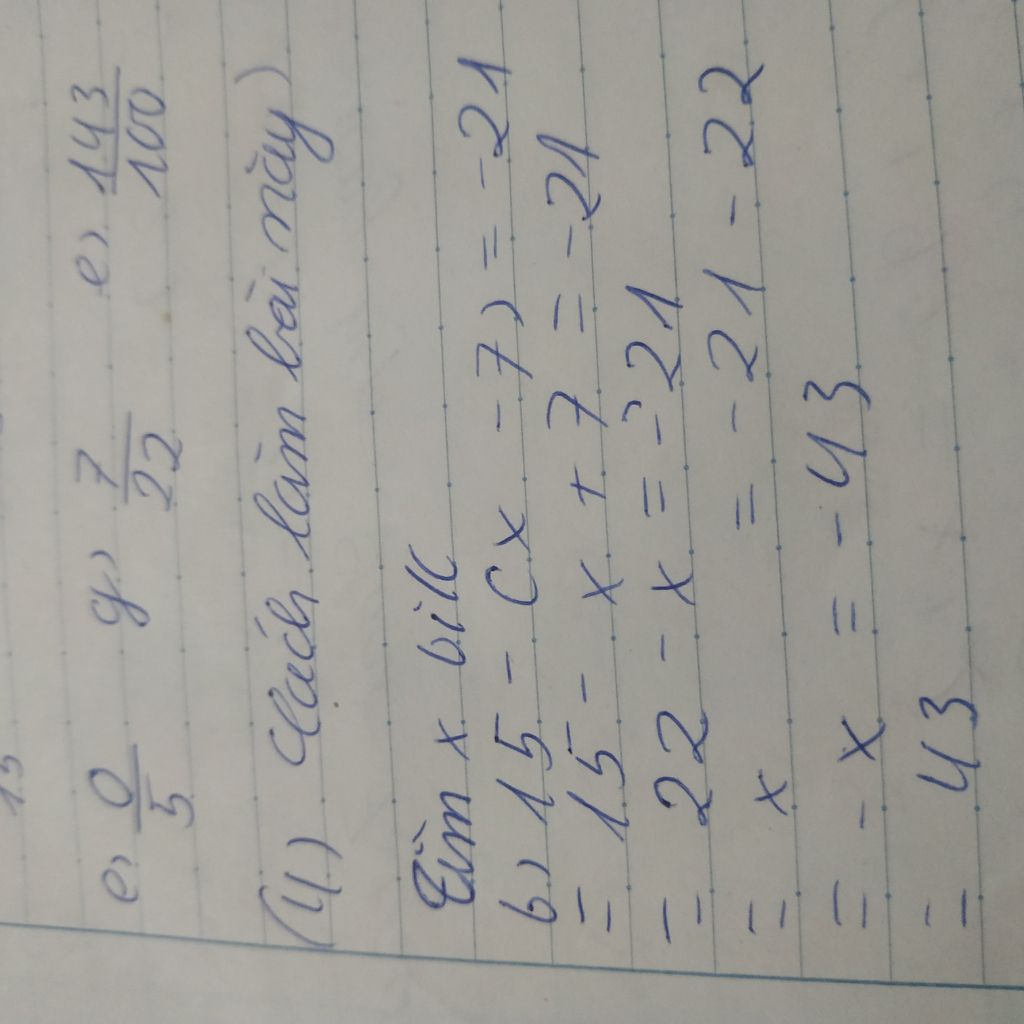 13
e, 0/5 g, 7/22 e, 143/100
(4) Cách làm bài này)
Tìm x bik
b, 15 - (x - 7) = -21
= 15 - x + 7 = -21
= 22 - x = -21
= x = -21 - 22
= -x = -43
= 43